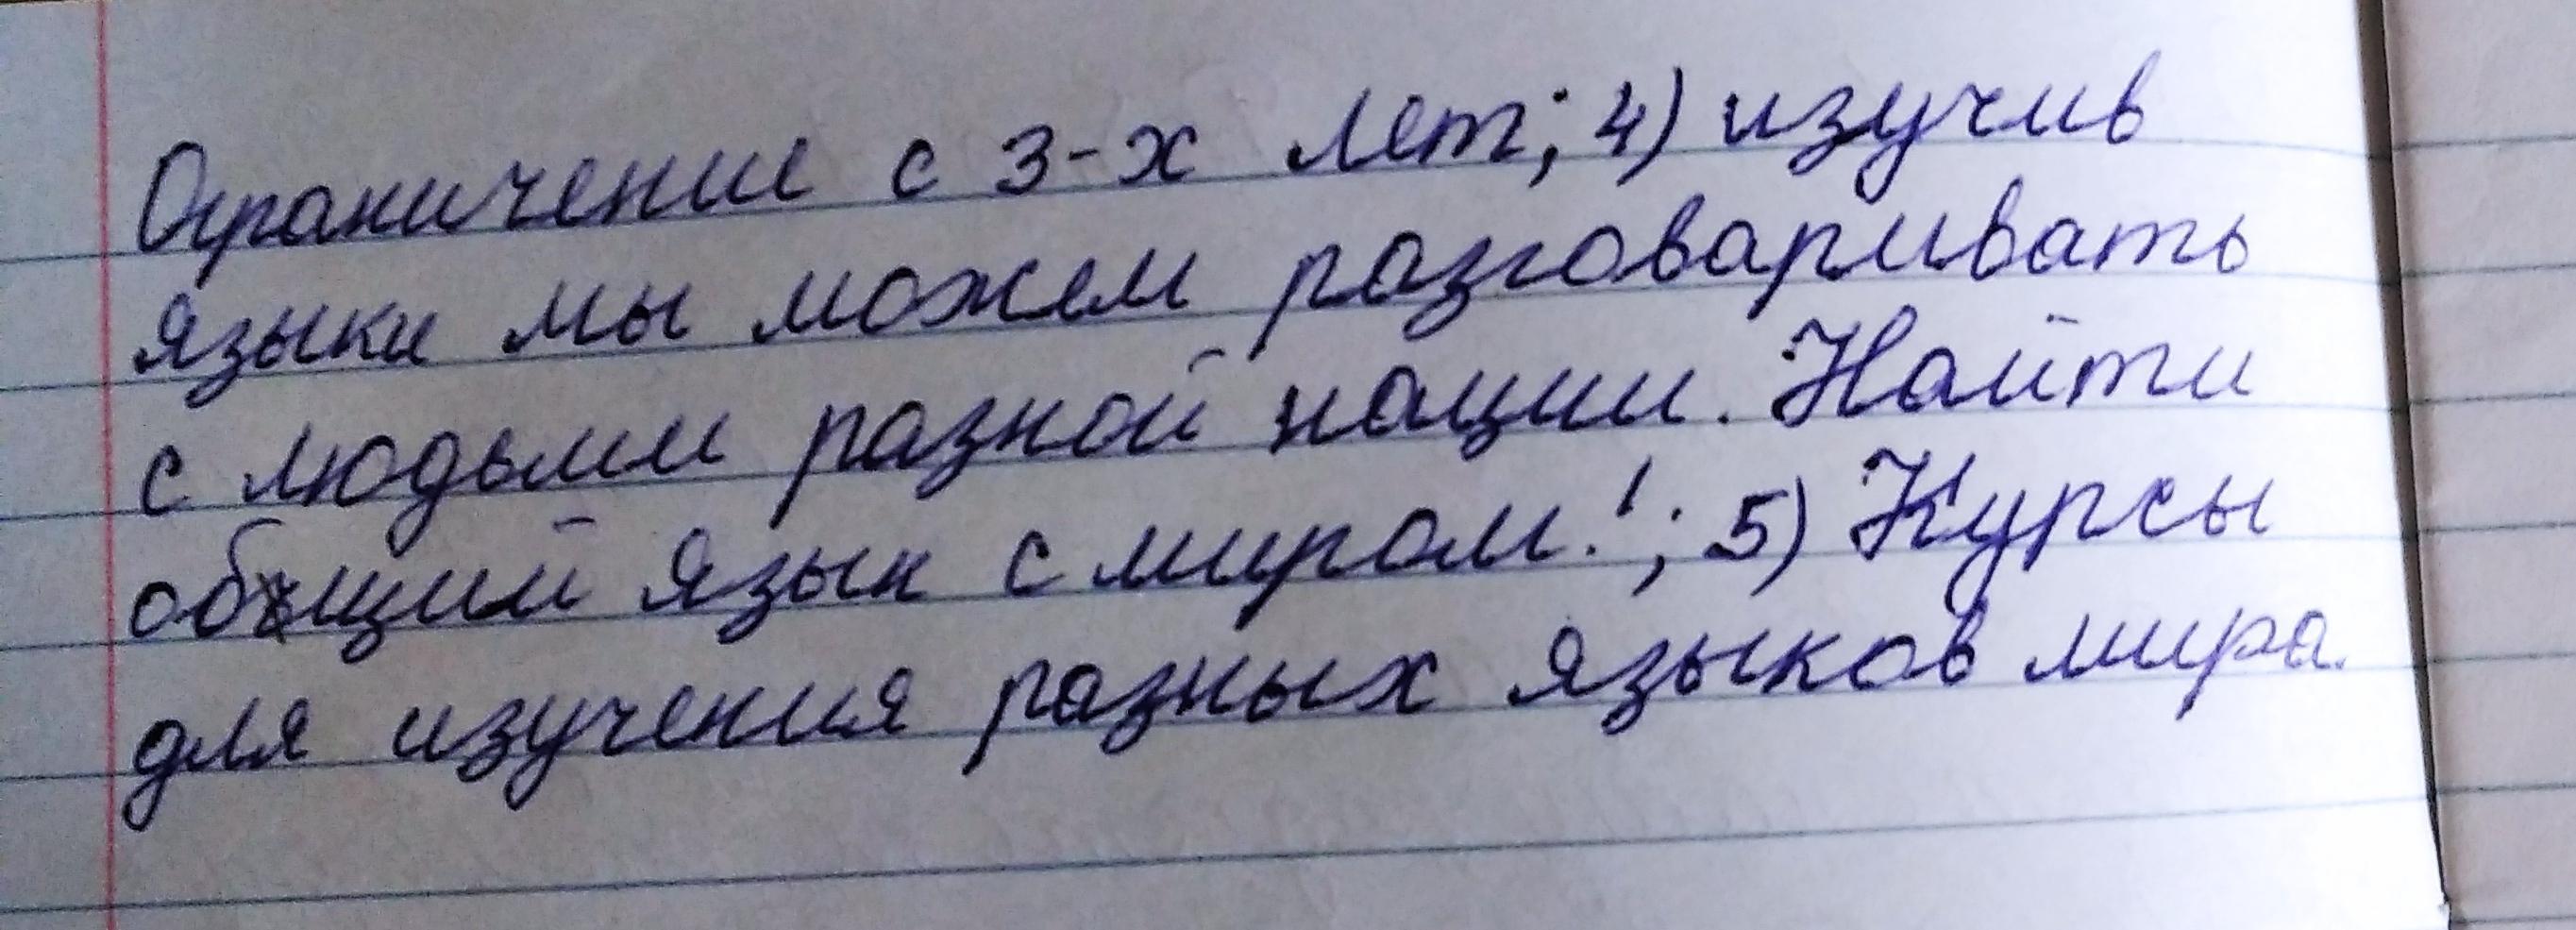 Ограничение с 3-х лет; 4) изучив
языки мы можем разговаривать
с людьми разной нации. Найти
общий язык с миром!; 5) Курсы
для изучения разных языков мира.